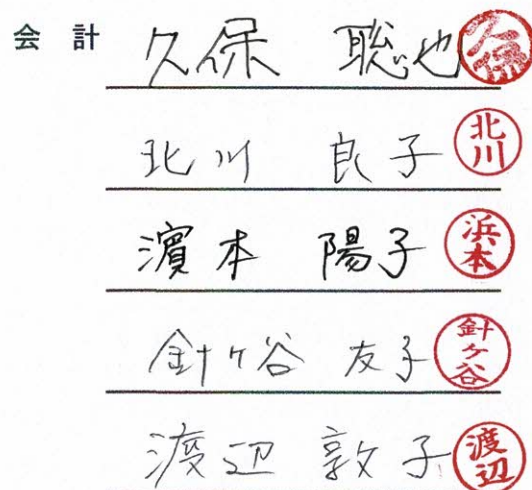 会計 久保 聡也 久保
北川 良子 北川
濱本 陽子 浜本
針ヶ谷 友子 針ヶ谷
渡辺 敦子 渡辺